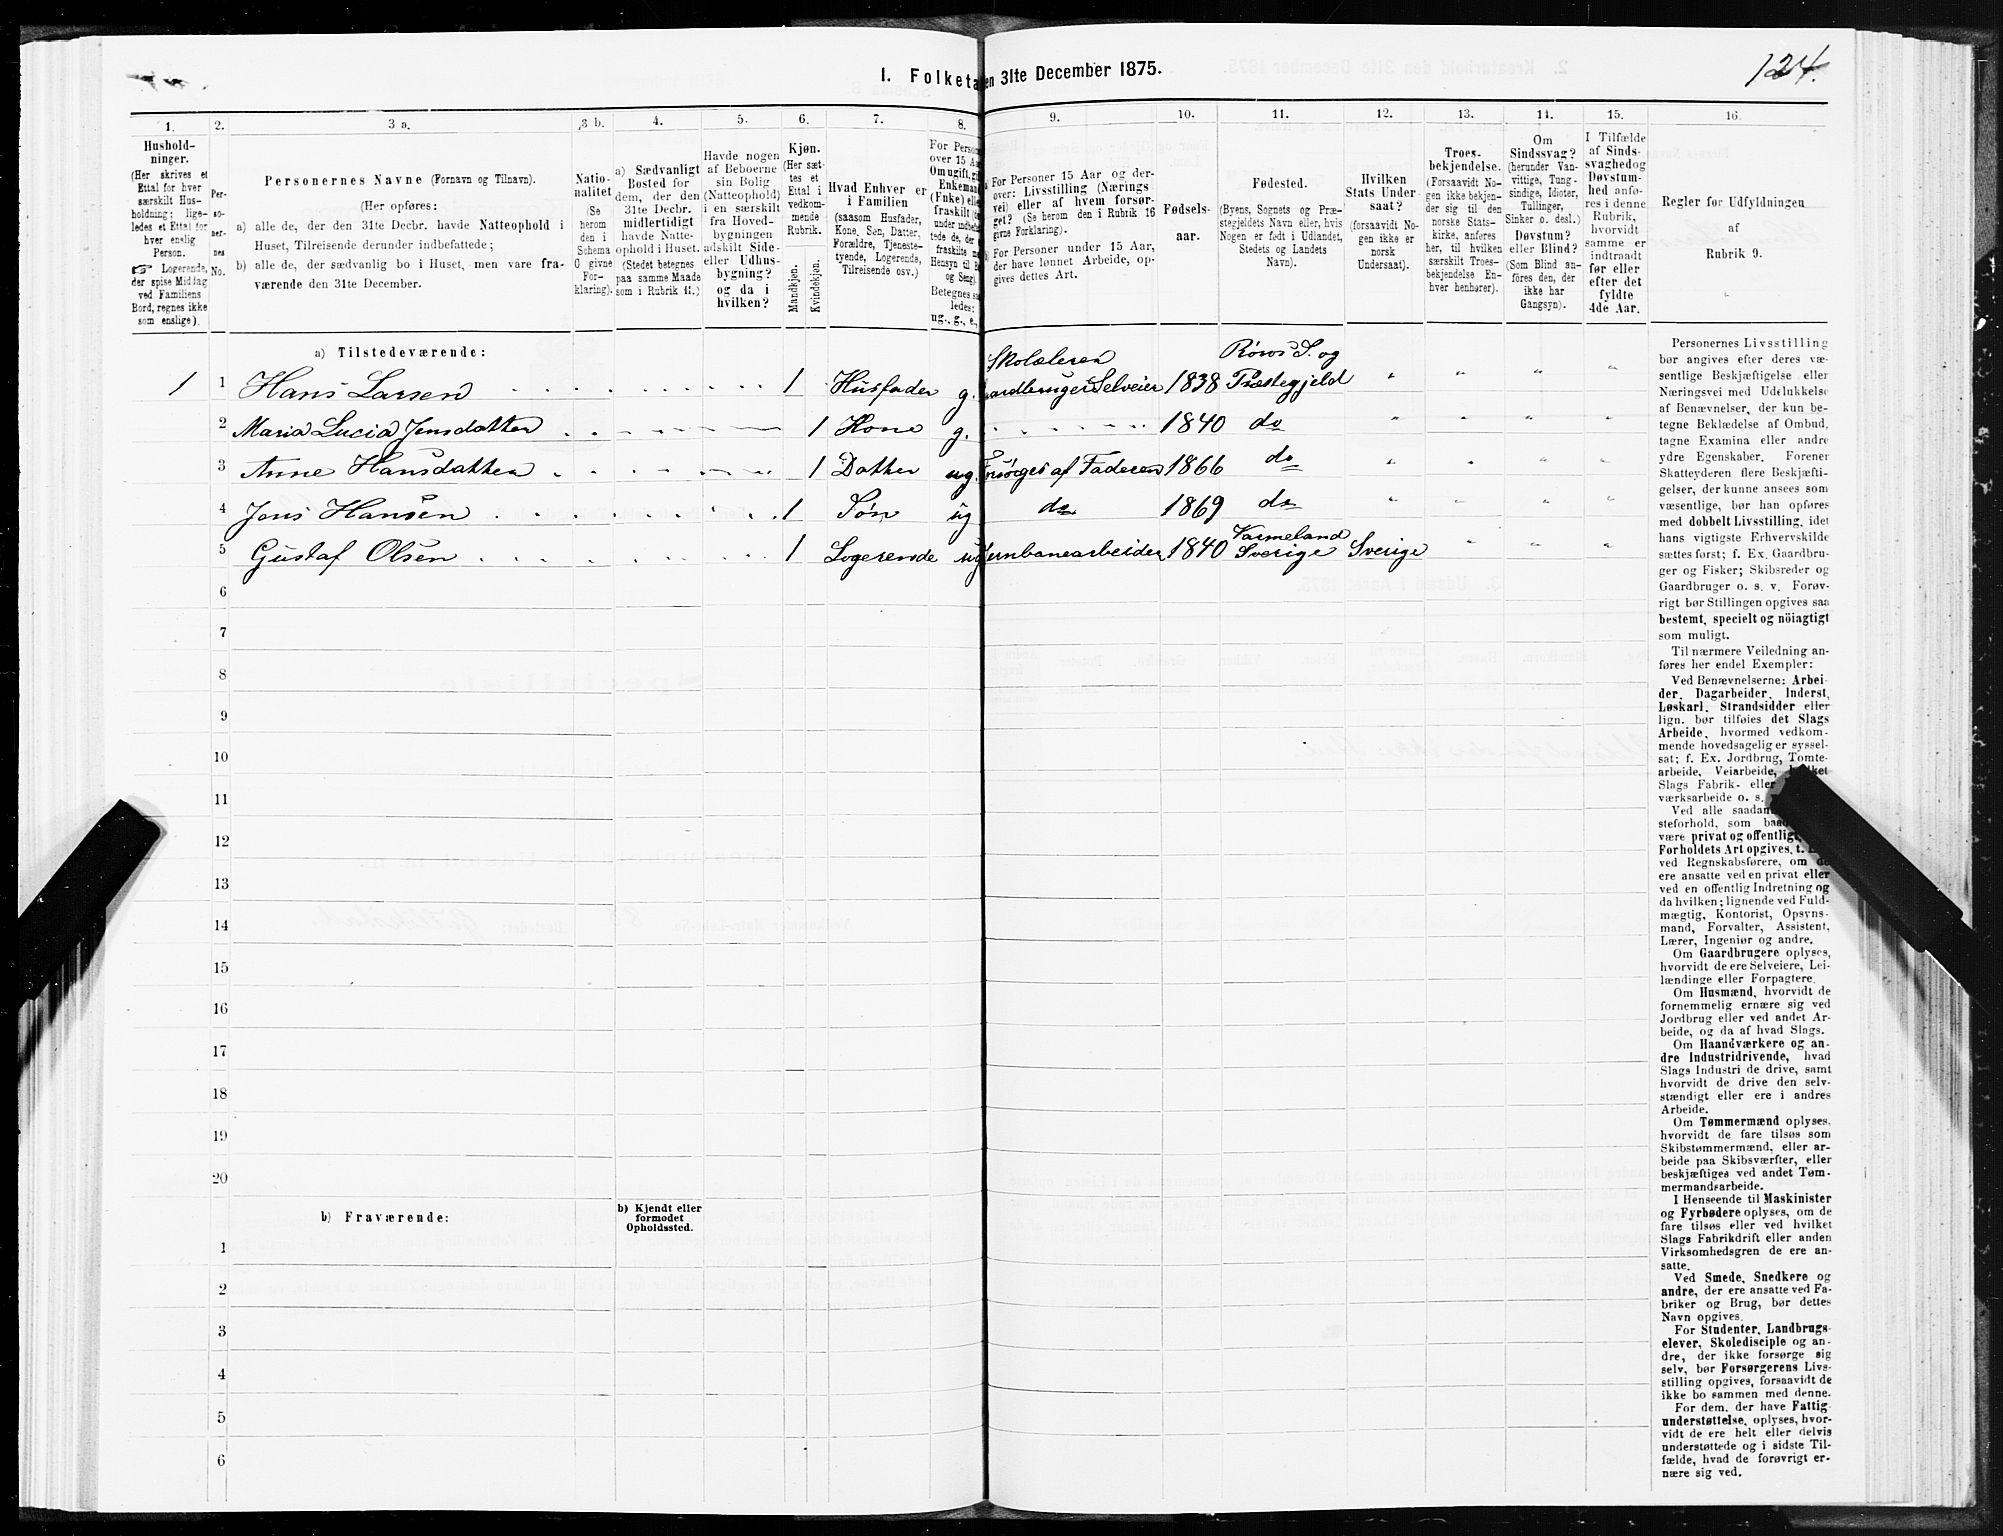 124.
I. Folketa
en 31te December 1875.
1.
2.
3 a.
3 b.
4.
5.
6.
7.
8.
9.
10.
11.
12.
13.
14.
15.
16.
Hushold-
ninger.
(Her skrives et
Ettal for hver
særskilt Hus-
holdning; lige-
ledes et Ettal for
hver enslig
Person.
☞ Logerende,
der spise Middag
ved Familiens
Bord, regnes ikke
som enslige).
Per-
so-
ner-
nes
No.
Personernes Navne (Fornavn og Tilnavn).
(Her opføres:
a) alle de, der den 31te Decbr. havde Natteophold i
Huset, Tilreisende derunder indbefattede;
b) alle de, der sædvanlig bo i Huset, men vare fra-
værende den 31te December.
Natio-
nalitet
(Se
herom
den i
Schema
G givne
For-
klaring).
a) Sædvanligt
Bosted for
dem, der den
31te Decbr.
midlertidigt
havde Natte-
ophold i Huset.
(Stedet betegnes
paa samme Maade
som i Rubrik 11.)
Havde nogen
af Beboerne
sin Bolig
(Natteophold)
i en særskilt
fra Hoved-
bygningen
adskilt Side-
eller Udhus-
bygning?
og da i
hvilken?
Kjøn.
(Her sæt-
tes et
Ettal i
vedkom-
mende
Rubrik.
Mandkjøn.
Kvindekjøn.
Hvad Enhver er
i Familien
(saasom Husfader,
Kone, Søn, Datter,
Forældre, Tjeneste-
tyende, Logerende,
Tilreisende osv.)
For Person
over 15 Aa
Om ugift, gi
Enkeman
(Fnke) elle
fraskilt (d
under indbefa
tede de, der e
fraskilte m
Hensyn til B
og Seng).
Betegnes saa
ledes:
ug., g., e.,
a) For Personer 15 Aar og der-
over: Livsstilling (Nærings
vei) eller af hvem forsør-
get? (Se herom den i Rubrik 16
givne Forklaring).
b) For Personer under 15 Aar,
der have lønnet Arbeide, op-
gives dettes Art.
Fødsels-
aar.
Fødested.
(Byens, Sognets og Præ-
stegjeldets Navn eller, hvis
Nogen er født i Udlandet,
Stedets og Landets
Navn).
Hvilken
Stats Under
saat?
(forsaavidt No-
gen ikke er
norsk
Undersaat).
Troes-
bekjendelse.
(Forsaavidt No-
gen ikke bekjen-
der sig til den
norske Stats-
kirke, anføres
her, til hvilken
særskilt Troes-
bekjendelse En-
hver henhører).
Om
Sindssvag?
(herunder Van-
vittige, Tung-
sindige, Idioter,
Tullinger,
Sinker o. desl.)
Døvstum?
eller Blind?
(Som Blind an-
føres den, der
ikke har
Gangsyn).
I Tilfælde
af Sinds-
svaghedog
Døvstum-
hed anfø-
res i denne
Rubrik,
hvorvidt
samme er
indtraadt
før eller
efter det
fyldte
4de Aar.
Regler før Udfyldningen
af
Rubrik 9.
a) Tilstedeværende:
Skolelærer
Røros S. og
1 1 Hans Larsen 1 Husfader g. Gaardbruger Selveier 1838 Præstegjeld " " " "
2 Maria Lucia Jensdatter 1 Kone g. 1840 do " " " "
3 Anne Hansdatter 1 Datter ug. Forsørges af Faderen 1866 do " " " "
4 Jens Hansen 1 Søn ug do 1869 do " " " "
Varmeland
5 Gustaf Olsen 1 Logerende ug Jernbanearbeider 1840 Sverige Sverige " " "
6
7
8
9
10
11
12
13
14
15
16
17
18
19
20
b) Fraværende:
b) Kjendt eller
formodet
Opholdssted.
1
2
3
4
5
6
Personernes Livsstilling
bør angives efter deres væ-
sentlige Beskjæftigelse eller
Næringsvei med Udelukkelse
af Benævnelser, der kun be-
tegne Beklædelse af Ombud,
tagne Examina eller andre
ydre Egenskaber. Forener
Skatteyderen flere Beskjæfti-
gelser, der kunne ansees som
væsentlige, bør han opføres
med dobbelt Livsstilling, idet
hans vigtigste Erhvervskilde
sættes først; f. Ex. Gaardbru-
ger og Fisker; Skibsreder og
Gaardbruger o. s. v. Forøv-
rigt bør Stillingen opgives saa
bestemt, specielt og nöiagtigt
som muligt.
Til nærmere Veiledning an-
føres her endel Exempler:
Ved Benævnelserne: Arbei
der, Dagarbeider, Inderst,
Løskarl, Strandsidder eller
lign. bør tilføies det Slags
Arbeide, hvormed vedkom-
mende hovedsagelig er syssel-
sat; f. Ex. Jordbrug, Tomte-
arbeide, Veiarbeide,
Slags Fabrik- eller
værksarbeide o. s.
Ved alle saadan
steforhold, som baa
være privat og offentlig,
Forholdets Art opgives, t.
ved Regnskabsførere, om de
ere ansatte ved en privat eller
ved en offentlig Indretning og
da hvilken; lignende ved Fuld-
mægtig, Kontorist, Opsyns-
mand, Forvalter, Assistent,
Lærer, Ingeniør og andre.
Om Gaardbrugere oplyses,
hvorvidt de ere Selveiere, Lei-
lændinge eller Forpagtere.
Om Husmænd, hvorvidt de
fornemmelig ernære sig ved
Jordbrug eller ved andet Ar-
beide, og da af hvad Slags.
Om Haandværkere og an-
dre Industridrivende, hvad
Slags Industri de drive, samt
hvorvidt de drive den selv-
stændigt eller ere i andres
Arbeide.
Om Tømmermænd oplyses,
hvorvidt de fare tilsøs som
Skibstømmermænd, eller ar-
beide paa Skibsværfter, eller
beskjæftiges ved andet Tøm-
mermandsarbeide.
I Henseende til Maskinister
og Fyrbødere oplyses, om de
fare tilsøs eller ved hvilket
Slags Fabrikdrift eller anden
Virksomhedsgren de ere an-
satte.
Ved Smede, Snedkere og
andre, der ere ansatte ved Fa-
briker og Brug, bør dettes
Navn opgives.
For Studenter, Landbrugs-
elever, Skoledisciple og an-
dre, der ikke forsørge sig
selv, bør Forsørgerens Livs-
stilling opgives, forsaavidt de
ikke bo sammen med denne.
For dem, der have Fattig
understøttelse, oplyses, hvor-
vidt de ere helt eller delvis
understøttede og i sidste Til-
fælde, hvad de forøvrigt er-
nære sig ved.